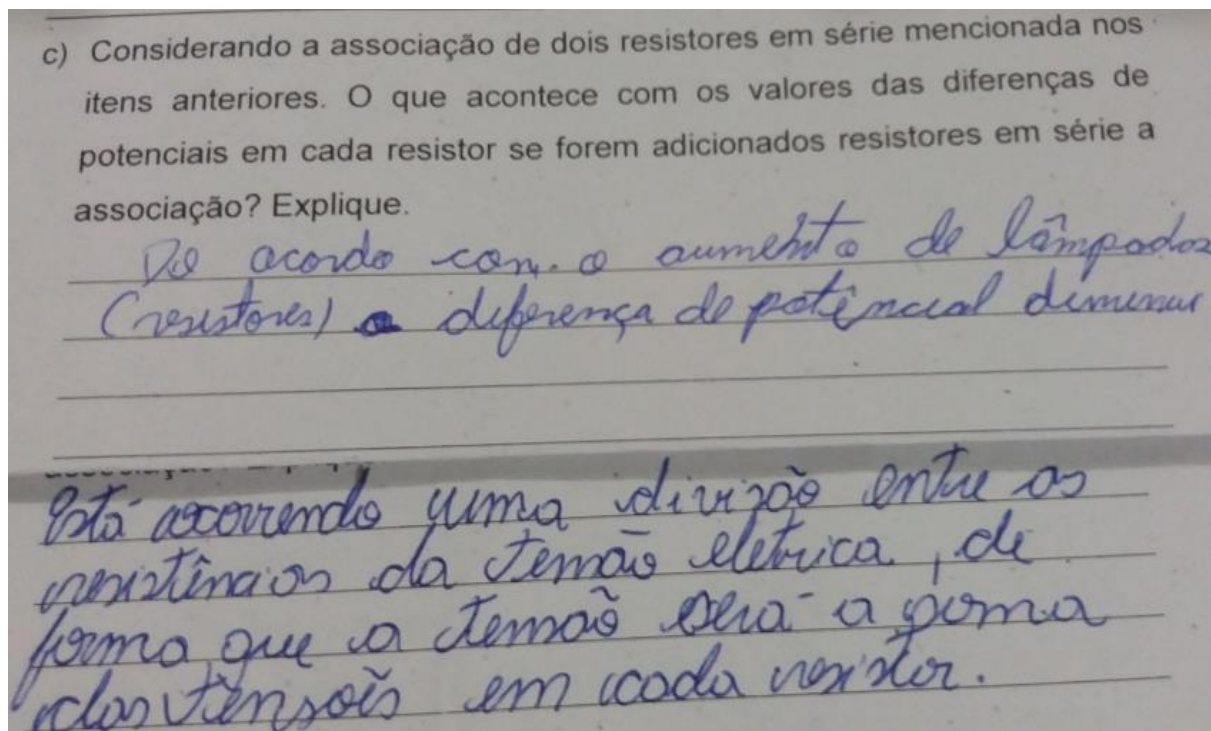 c) Considerando a associação de dois resistores em série mencionada nos
itens anteriores. O que acontece com os valores das diferenças de
potenciais em cada resistor se forem adicionados resistores em série a
associação? Explique.
De acordo com. o aumento de lâmpadas
(resistores) a diferença de potêncial diminui
Está ocorrendo uma divizão entre as
resistências da temão eletrica, de
forma que a temão será a soma
das tensois em cada resistor.